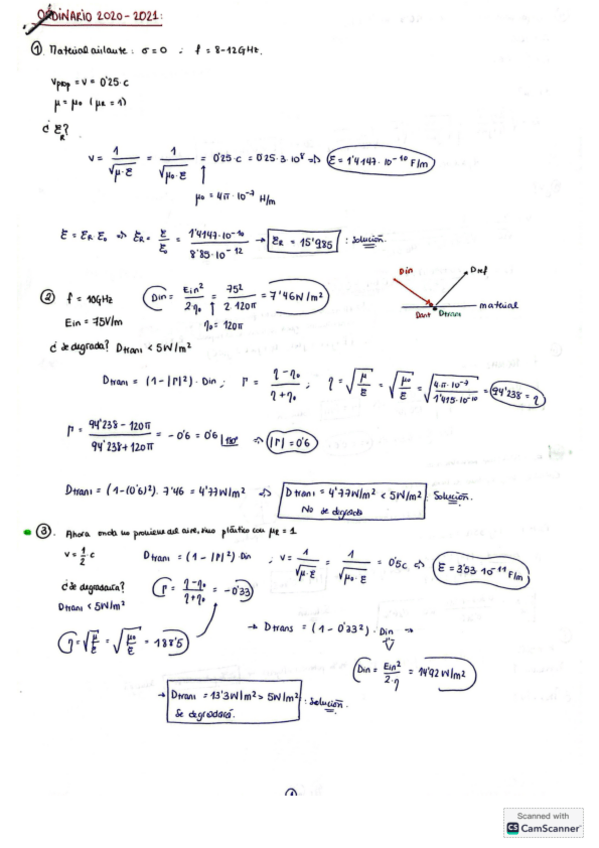 ORDINARIO 2020-2021:
① Material aislante: σ=0 ; f = 8-12GHz.
Vprop = v = 0'25·c
μ = μ₀ (μR = 1)
¿ εR?
v = 1/√μ·ε = 1/√μ₀·ε = 0'25·c = 0'25·3·10⁸ => ε = 1'4147·10⁻¹⁰ F/m
μ₀ = 4π·10⁻⁷ H/m
ε = εR·ε₀ => εR = ε/ε₀ = 1'4147·10⁻¹⁰/8'85·10⁻¹² → εR = 15'985 : Solución.
② f = 10GHz Din = Ein²/2·η₀ = 75²/2·120π = 7'46W/m²
Ein = 75V/m η₀ = 120π
Din Dref
material
Dant Dtrans
¿ se degrada? Dtrans < 5W/m²
Dtrans = (1-|Γ|²)·Din ; Γ = η-η₀/η+η₀ ; η = √μ/ε = √μ₀/ε = √4·π·10⁻⁷/1'415·10⁻¹⁰ = 94'238 = η
Γ = 94'238-120π/94'238+120π = -0'6 = 0'6 |180° => |Γ| = 0'6
Dtrans = (1-(0'6)²)· 7'46 = 4'77W/m² => Dtrans = 4'77W/m² < 5W/m² Solución.
No se degrada
③. Ahora onda no proviene del aire, sino plástico con μR = 1
v = 1/2 c Dtrans = (1-|Γ|²)·Din ; v = 1/√μ·ε = 1/√μ₀·ε = 0'5c => ε = 3'53 10⁻¹¹ F/m
¿ se degradaría? Γ = η-η₀/η+η₀ = -0'33
Dtrans < 5W/m²
η = √μ/ε = √μ₀/ε = 188'5
→ Dtrans = (1-0'33²)·Din →
Din = Ein²/2·η = 14'92W/m²
→ Dtrans = 13'3W/m² > 5W/m² : Solución.
Se degradará.
Scanned with
CS CamScanner